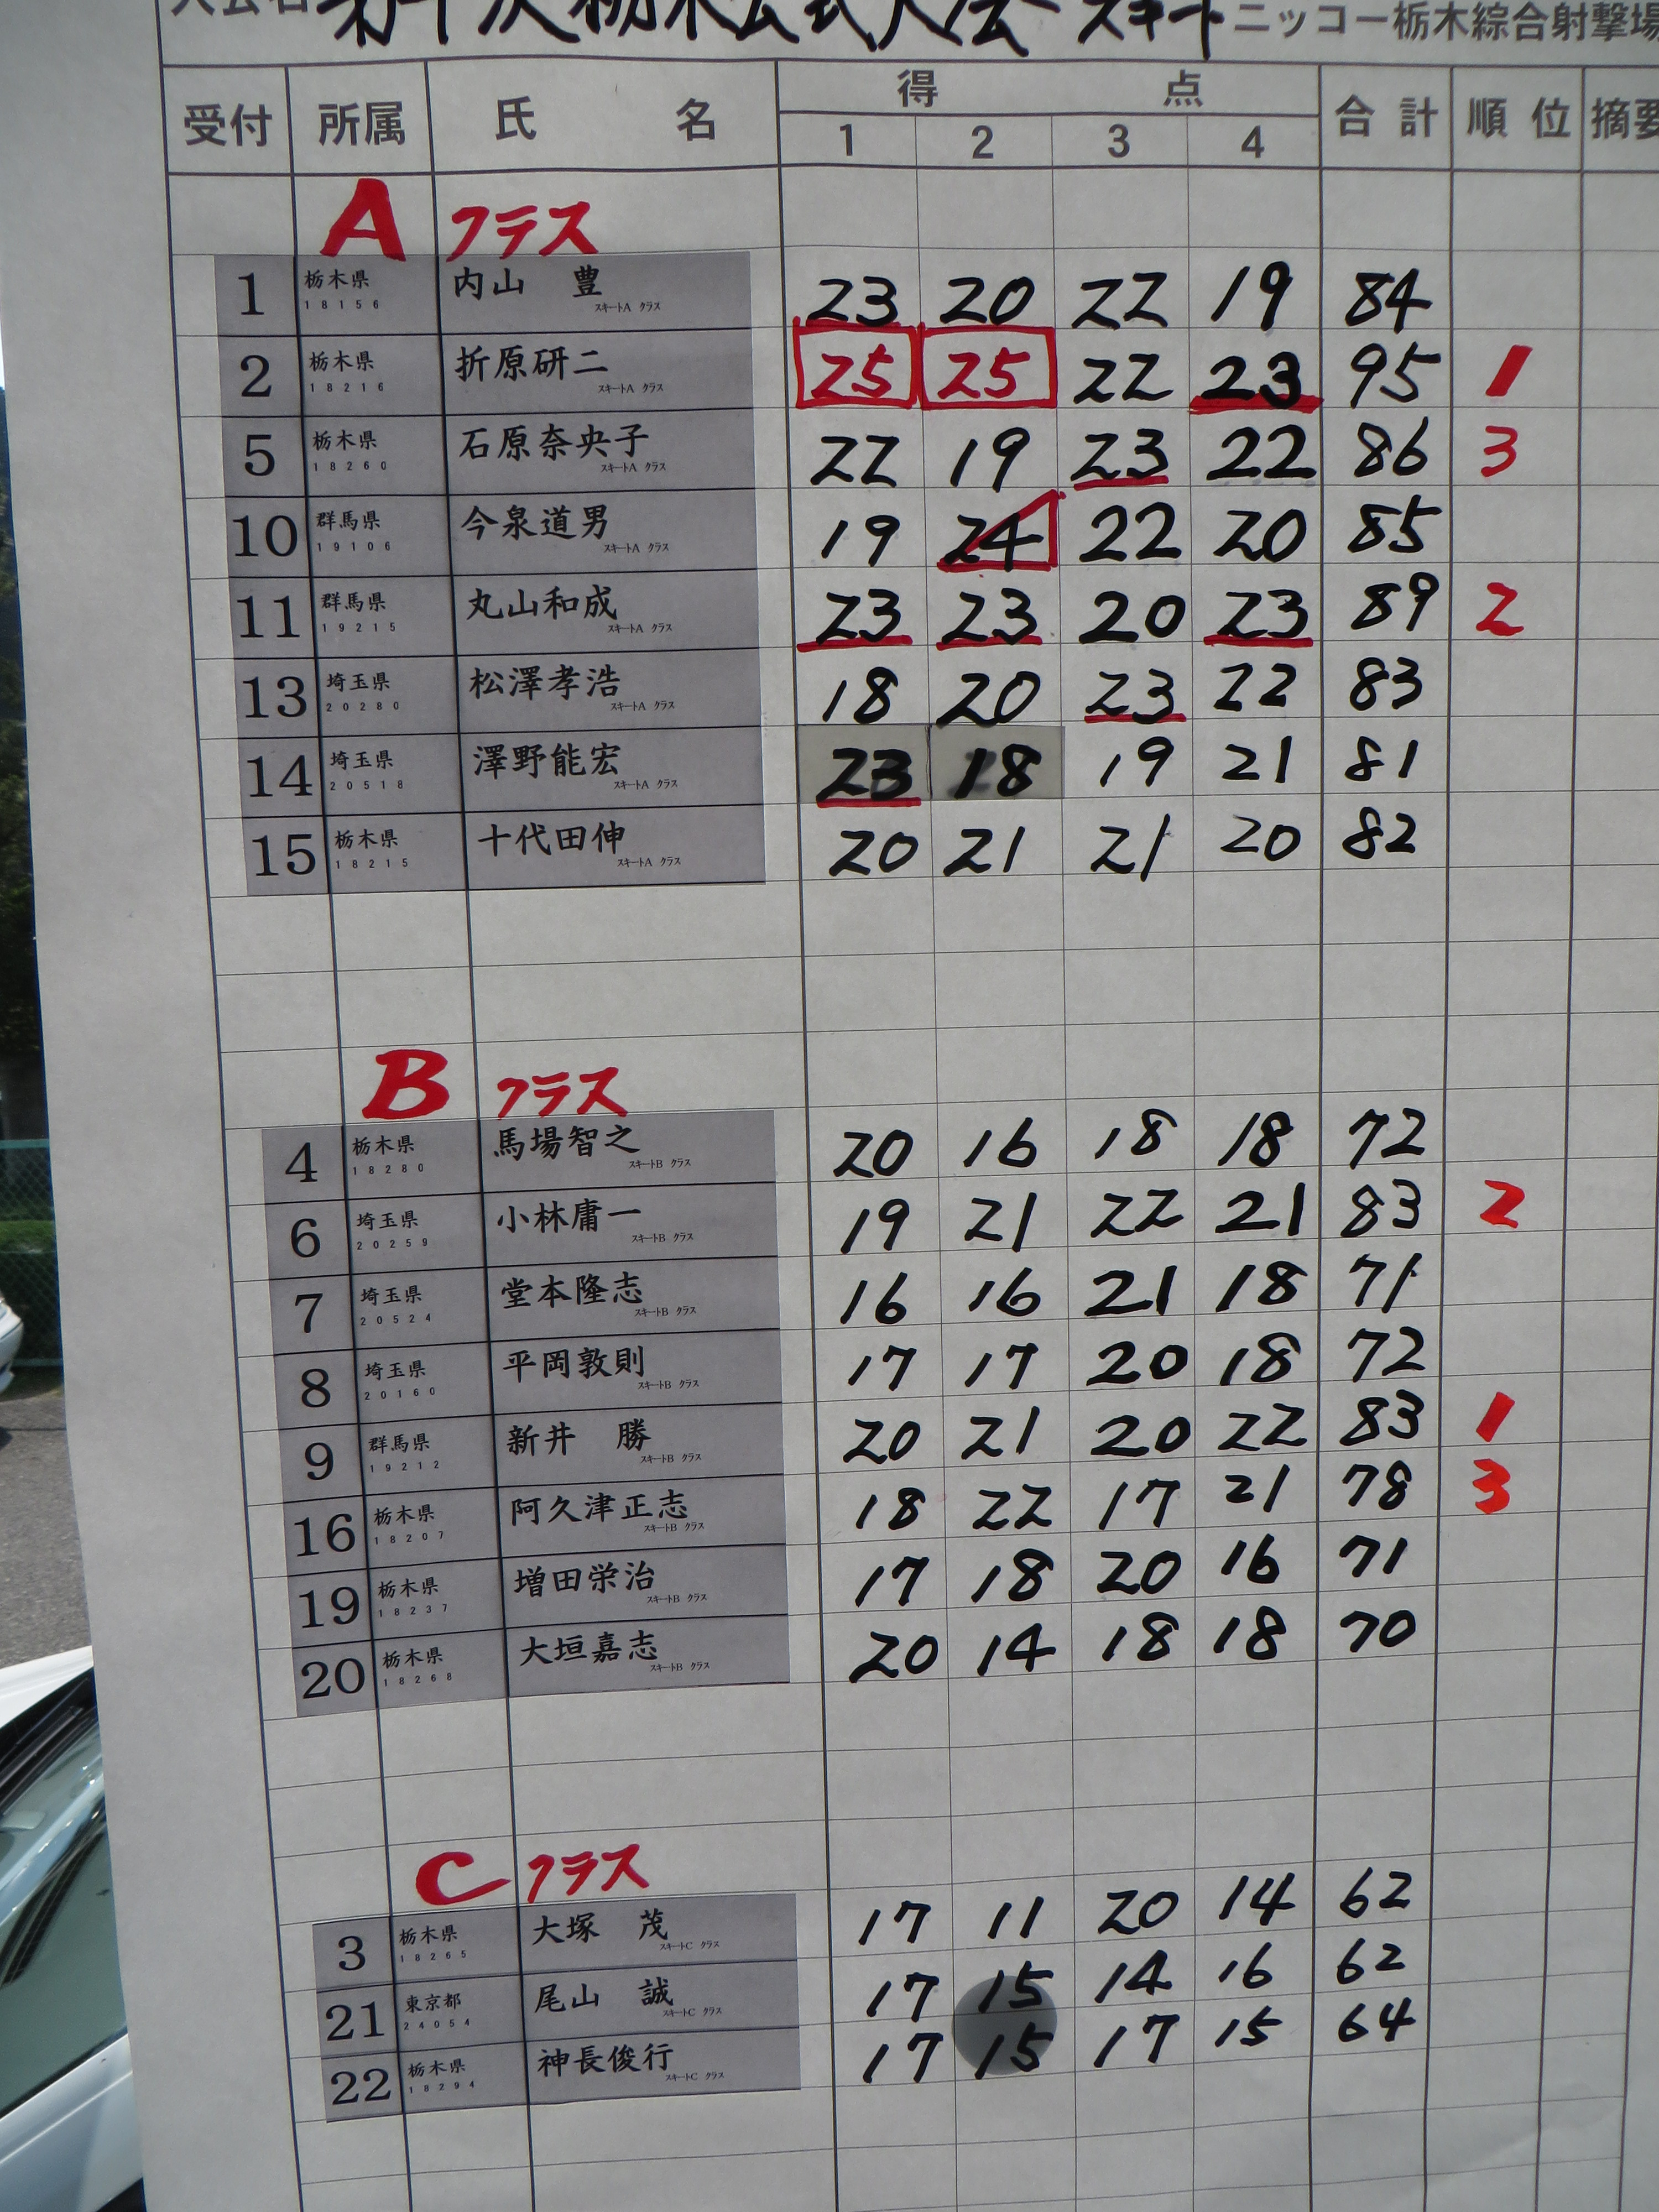 第十次栃木公式大会 スキート ニッコー栃木綜合射撃場
受付 所属 氏 名 得 点 合計 順位 摘要
1 2 3 4
A クラス
1 栃木県 18156 内山 豊 スキートA クラス 23 20 22 19 84
2 栃木県 18216 折原研二 スキートA クラス 25 25 22 23 95 1
5 栃木県 18260 石原奈央子 スキートA クラス 22 19 23 22 86 3
10 群馬県 19106 今泉道男 スキートA クラス 19 24 22 20 85
11 群馬県 19215 丸山和成 スキートA クラス 23 23 20 23 89 2
13 埼玉県 20280 松澤孝浩 スキートA クラス 18 20 23 22 83
14 埼玉県 20518 澤野能宏 スキートA クラス 23 18 19 21 81
15 栃木県 18215 十代田伸 スキートA クラス 20 21 21 20 82
B クラス
4 栃木県 18280 馬場智之 スキートB クラス 20 16 18 18 72
6 埼玉県 20259 小林庸一 スキートB クラス 19 21 22 21 83 2
7 埼玉県 20524 堂本隆志 スキートB クラス 16 16 21 18 71
8 埼玉県 20160 平岡敦則 スキートB クラス 17 17 20 18 72
9 群馬県 19212 新井 勝 スキートB クラス 20 21 20 22 83 1
16 栃木県 18207 阿久津正志 スキートB クラス 18 22 17 21 78 3
19 栃木県 18237 増田栄治 スキートB クラス 17 18 20 16 71
20 栃木県 18268 大垣嘉志 スキートB クラス 20 14 18 18 70
C クラス
3 栃木県 18265 大塚 茂 スキートC クラス 17 11 20 14 62
21 東京都 24054 尾山 誠 スキートC クラス 17 15 14 16 62
22 栃木県 18294 神長俊行 スキートC クラス 17 15 17 15 64